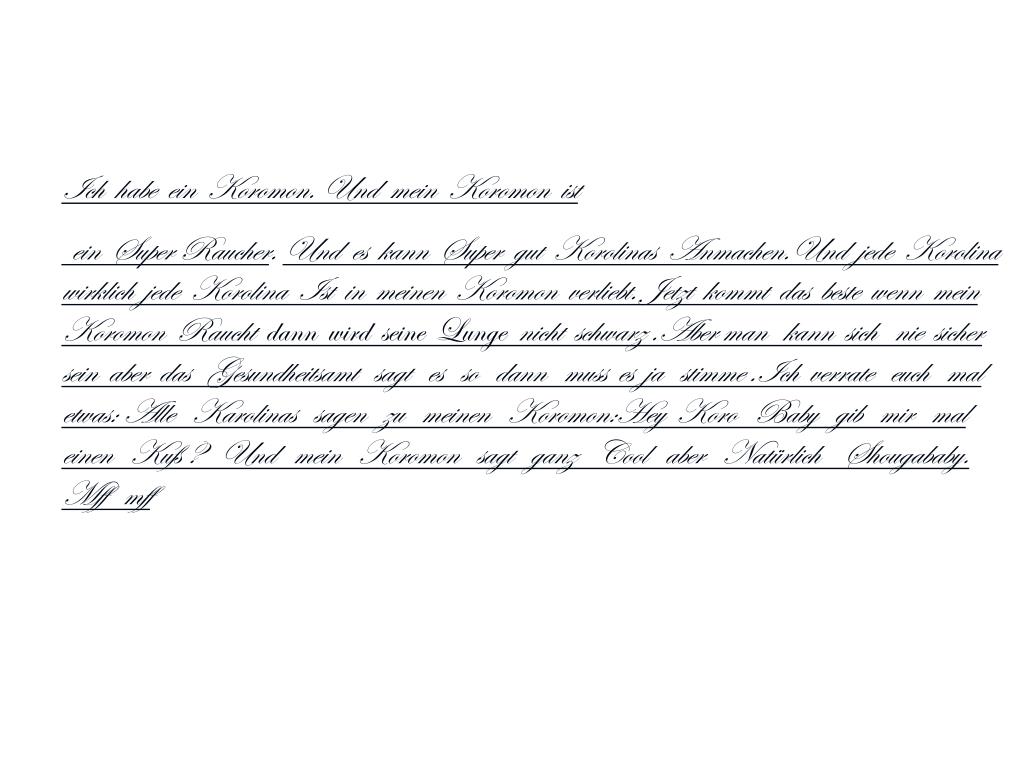 Ich habe ein Koromon. Und mein Koromon ist
ein Super Raucher. Und es kann Super gut Korolinas Anmachen. Und jede Korolina
wirklich jede Korolina Ist in meinen Koromon verliebt. Jetzt kommt das beste wenn mein
Koromon Raucht dann wird seine Lunge nicht schwarz. Aber man kann sich nie sicher
sein aber das Gesundheitsamt sagt es so dann muss es ja stimme. Ich verrate euch mal
etwas: Alle Karolinas sagen zu meinen Koromon: Hey Koro Baby gib mir mal
einen Kuß? Und mein Koromon sagt ganz Cool aber Natürlich Shougababy.
Mff mff